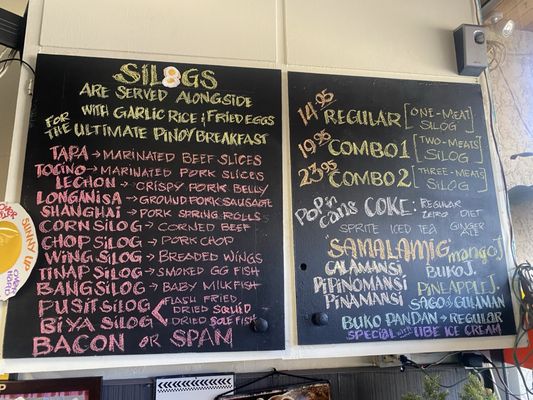 SILOGS
ARE SERVED ALONGSIDE
WITH GARLIC RICE & FRIED EGGS
FOR THE ULTIMATE PINOY BREAKFAST
TAPA → MARINATED BEEF SLICES
TOCINO → MARINATED PORK SLICES
LECHON → CRISPY PORK BELLY
LONGANISA → GROUND PORK SAUSAGE
SHANGHAI → PORK SPRING ROLLS
CORN SILOG → CORNED BEEF
CHOP SILOG → PORK CHOP
WING SILOG → BREADED WINGS
TINAP SILOG → SMOKED GG FISH
BANGSILOG → BABY MILKFISH
PUSIT SILOG FLASH FRIED DRIED SQUID
BIYA SILOG DRIED SOLE FISH
BACON OR SPAM
SUNNY UP
14.95 REGULAR [ONE-MEAT SILOG]
19.95 COMBO 1 [TWO-MEATS SILOG]
23.95 COMBO 2 [THREE-MEATS SILOG]
POP IN CANS COKE: REGULAR ZERO DIET
SPRITE ICED TEA GINGER ALE
SAMALAMIG MANGO J.
CALAMANSI BUKO J.
PIPINOMANSI PINEAPPLE J.
PINAMANSI SAGO & GULAMAN
BUKO PANDAN → REGULAR
SPECIAL WITH UBE ICE CREAM